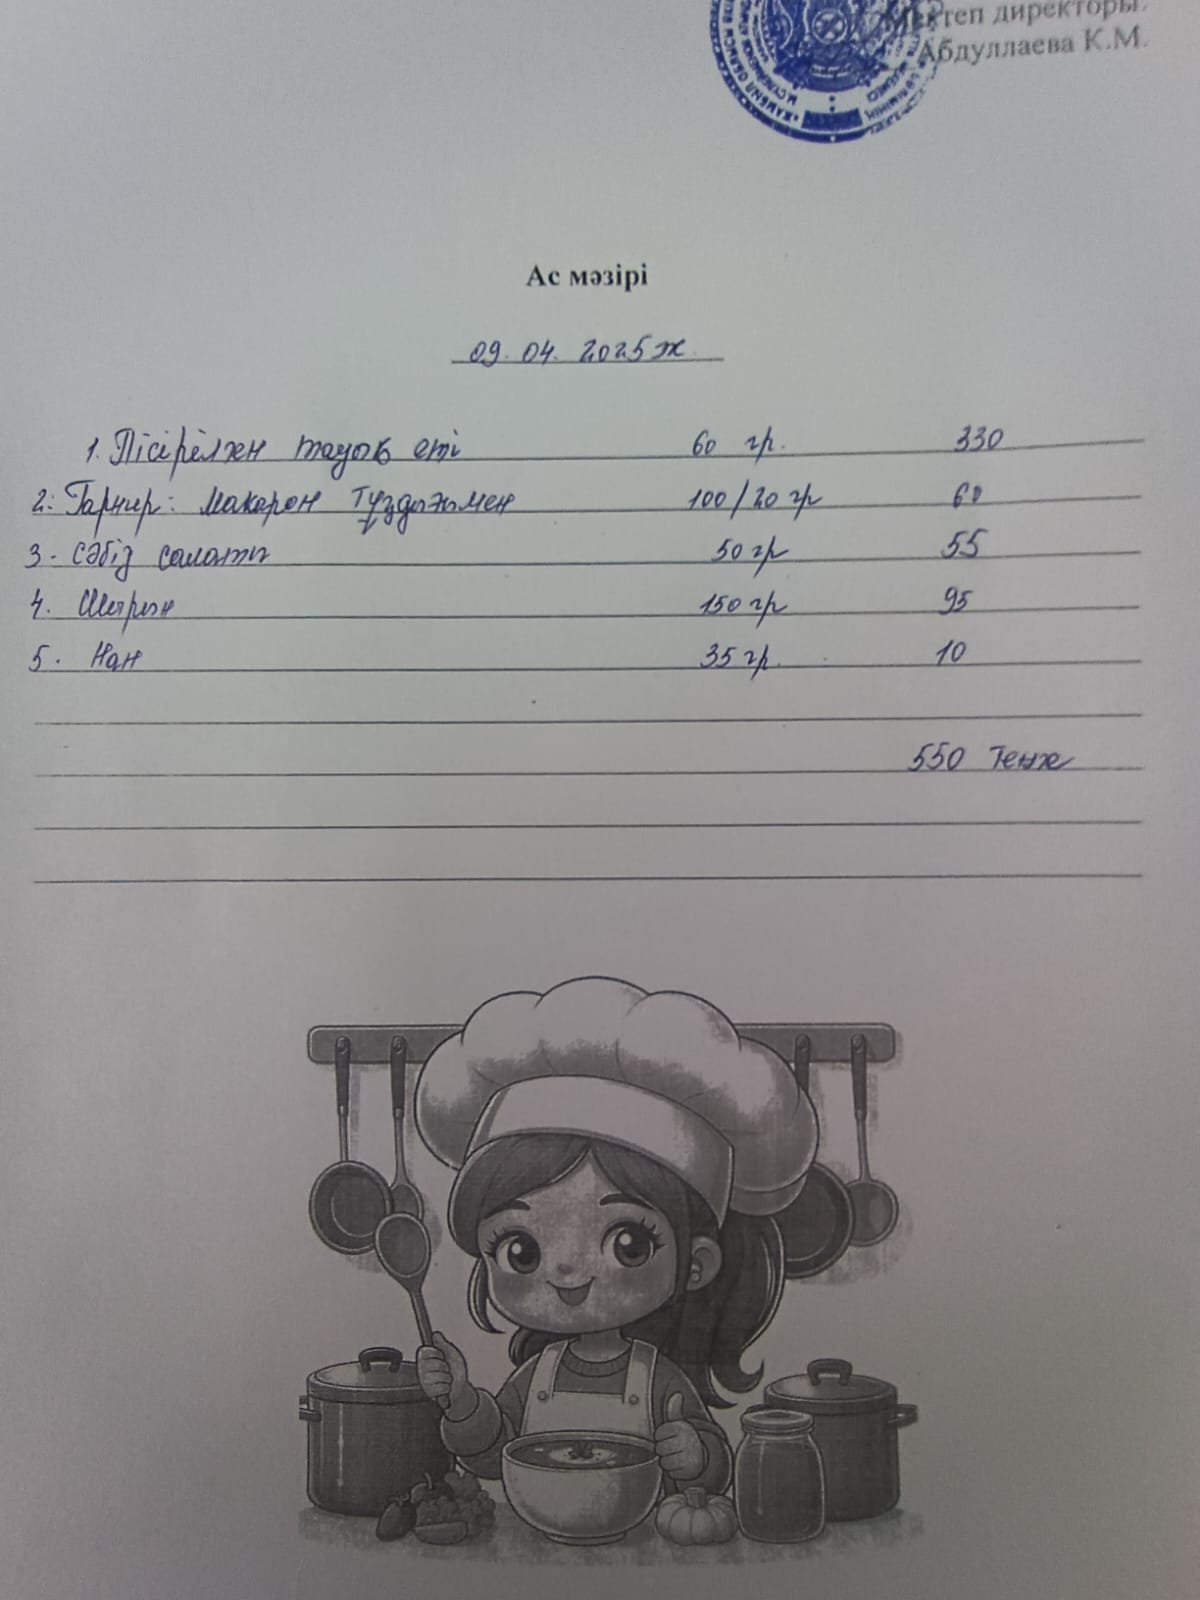 Мектеп директоры:
Абдуллаева К.М.
Ас мәзірі
09. 04. 2025 ж.
1. Пісірілген тауық еті 60 гр. 330
2. Гарнир: Макарон тұздығымен 100/20 гр 60
3. Сәбіз салаты 50 гр 55
4. Шырын 150 гр 95
5. Нан 35 гр. 10
550 Теңге